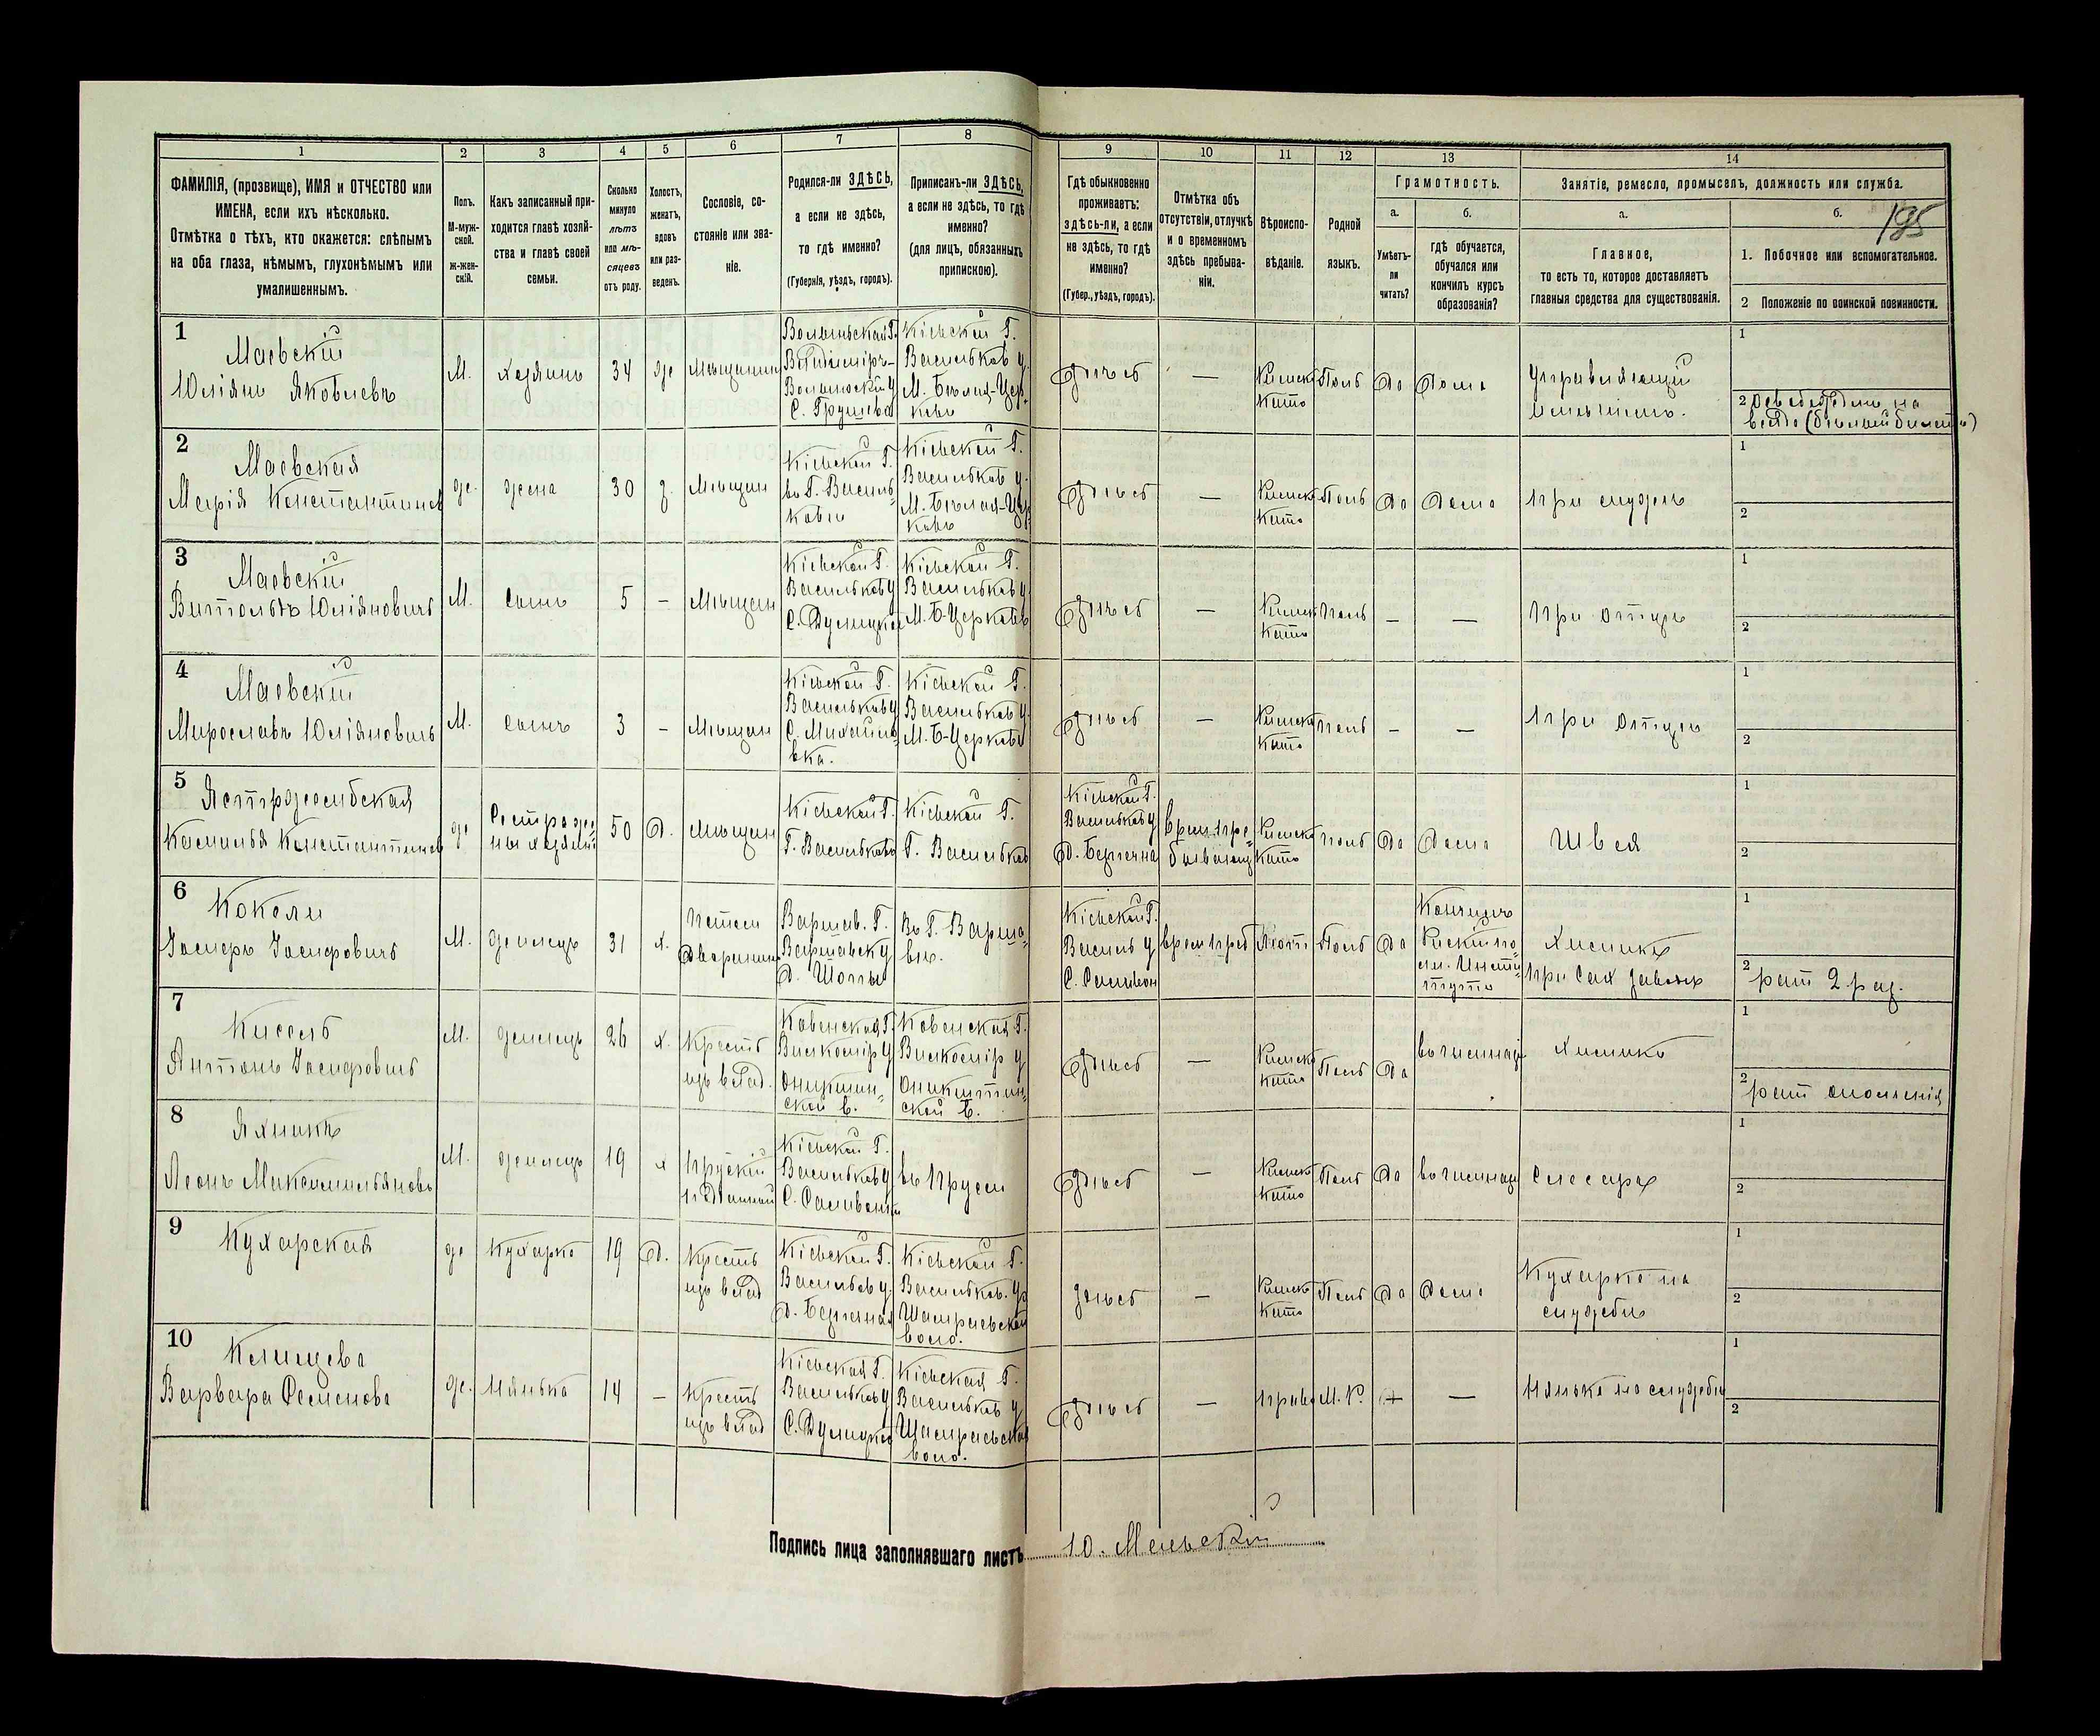 195
1
2
3
4
5
6
7
8
9
10
11
12
13
14
ФАМИЛІЯ, (прозвище), ИМЯ и ОТЧЕСТВО или
ИМЕНА, если ихъ нѣсколько.
Отмѣтка о тѣхъ, кто окажется: слѣпымъ
на оба глаза, нѣмымъ, глухонѣмымъ или
умалишеннымъ.
Полъ.
М-муж-
ской.
ж-жен-
скій.
Какъ записанный при-
ходится главѣ хозяй-
ства и главѣ своей
семьи.
Сколько
минуло
лѣтъ
или мѣ-
сяцевъ
отъ роду.
Холостъ,
женатъ,
вдовъ
или раз-
веденъ.
Сословіе, со-
стояніе или зва-
ніе.
Родился-ли ЗДѢСЬ,
а если не здѣсь,
то гдѣ именно?
(Губернія, уѣздъ, городъ).
Приписанъ-ли ЗДѢСЬ,
а если не здѣсь, то гдѣ
именно?
(для лицъ, обязанныхъ
припискою).
Гдѣ обыкновенно
проживаетъ:
здѣсь-ли, а если
не здѣсь, то гдѣ
именно?
(Губер., уѣздъ, городъ).
Отмѣтка объ
отсутствіи, отлучкѣ
и о временномъ
здѣсь пребыва-
ніи.
Вѣроиспо-
вѣданіе.
Родной
языкъ.
Грамотность.
а.
Умѣетъ-
ли
читать?
б.
гдѣ обучается,
обучался или
кончилъ курсъ
образованія?
Занятіе, ремесло, промыселъ, должность или служба.
а.
Главное,
то есть то, которое доставляетъ
главныя средства для существованія.
б.
1. Побочное или вспомогательное.
2 Положеніе по воинской повинности.
1
Маевскій
Юліянъ Яковлевъ
М.
Хозяинъ
34
же
Мѣщанинъ
Волынская Г.
Владиміръ-
Волынскій у
С. Грушево
Кіевской Г.
Васильков у.
М. Бѣлая-Цер-
ковь
Здѣсь
—
Римско
Като
Поль
Да
Дома
Управляющій
имѣніемъ.
1
2 Освобожденъ на
всегда (бѣлый билетъ)
2
Маевская
Марія Константинов
же.
жена
30
з.
Мѣщан
Кіевской Г.
въ Г. Василь-
ковѣ
Кіевской Г.
Васильков у.
М. Бѣлая-Цер
ковь
Здѣсь
—
Римско
Като
Поль
Да
Дома
При мужѣ
1
2
3
Маевскій
Витольтъ Юліяновичъ
М.
Сынъ
5
—
Мѣщан
Кіевской Г.
Васильков у
С. Дулицкое
Кіевской Г.
Васильков у
М. Б-Церковь
Здѣсь
—
Римск
Като
Поль
—
—
При отцѣ
1
2
4
Маевскій
Мирославъ Юліяновичъ
М.
Сынъ
3
—
Мѣщан
Кіевской Г.
Васильков у
С. Михайлов-
ка.
Кіевской Г.
Васильков у.
М. Б-Церковь
Здѣсь
—
Римско
Като
Поль
—
—
При отцѣ
1
2
5
Ястржембская
Камилья Константинов
же
Сестра же-
ны хозяин
50
д.
Мѣщан
Кіевской Г.
Г. Васильковѣ
Кіевской Г.
Г. Васильков
Кіевской Г.
Васильков у
Римско
Като
Поль
Да
Дома
Швея
1
2
6
Іосифовичъ
М.
жилецъ
31
х.
Потом
Дворянинъ
Варшав. Г.
Варшавск у
Въ Г. Варша-
вѣ.
Кіевской Г.
Василь у
Врем преб
Поль
Да
Кончилъ
Химикъ
При Сах заводѣ
1
2
рат 2 раз.
7
Кисель
Антонъ Іосифовичъ
М.
жилецъ
26
х.
Крестья
изъ влад.
Ковенская Г.
Вилкомір у
Ковенская Г.
Вилкомір у
ской в.
Здѣсь
—
Римско
Като
Поль
Да
Химикъ
1
2
рат ополченія
8
Яхникъ
Леонъ Максимильяновъ
М.
жилецъ
19
х
Прускій
Подданный
Кіевской Г.
Васильков у
въ Пруси
Здѣсь
—
Римско
Като
Поль
Да
Слесарь
1
2
9
Кухарская
же
Кухарка
19
д.
Кресть
изъ влад
Кіевской Г.
Васильков у.
Кіевской Г.
Васильков. у
воло.
Здѣсь
—
Римско
Като
Поль
Да
Дома
Кухарка на
службѣ
1
2
10
Варвара Семенова
же.
Нянька
14
—
Кресть
изъ влад
Кіевская Г.
Васильков у
С. Дулицкое
Кіевская Г.
Васильков у
воло.
Здѣсь
—
Право
М. Р.
—
Нянька на службѣ
1
2
Подпись лица заполнявшаго листъ
Ю. Маевскій